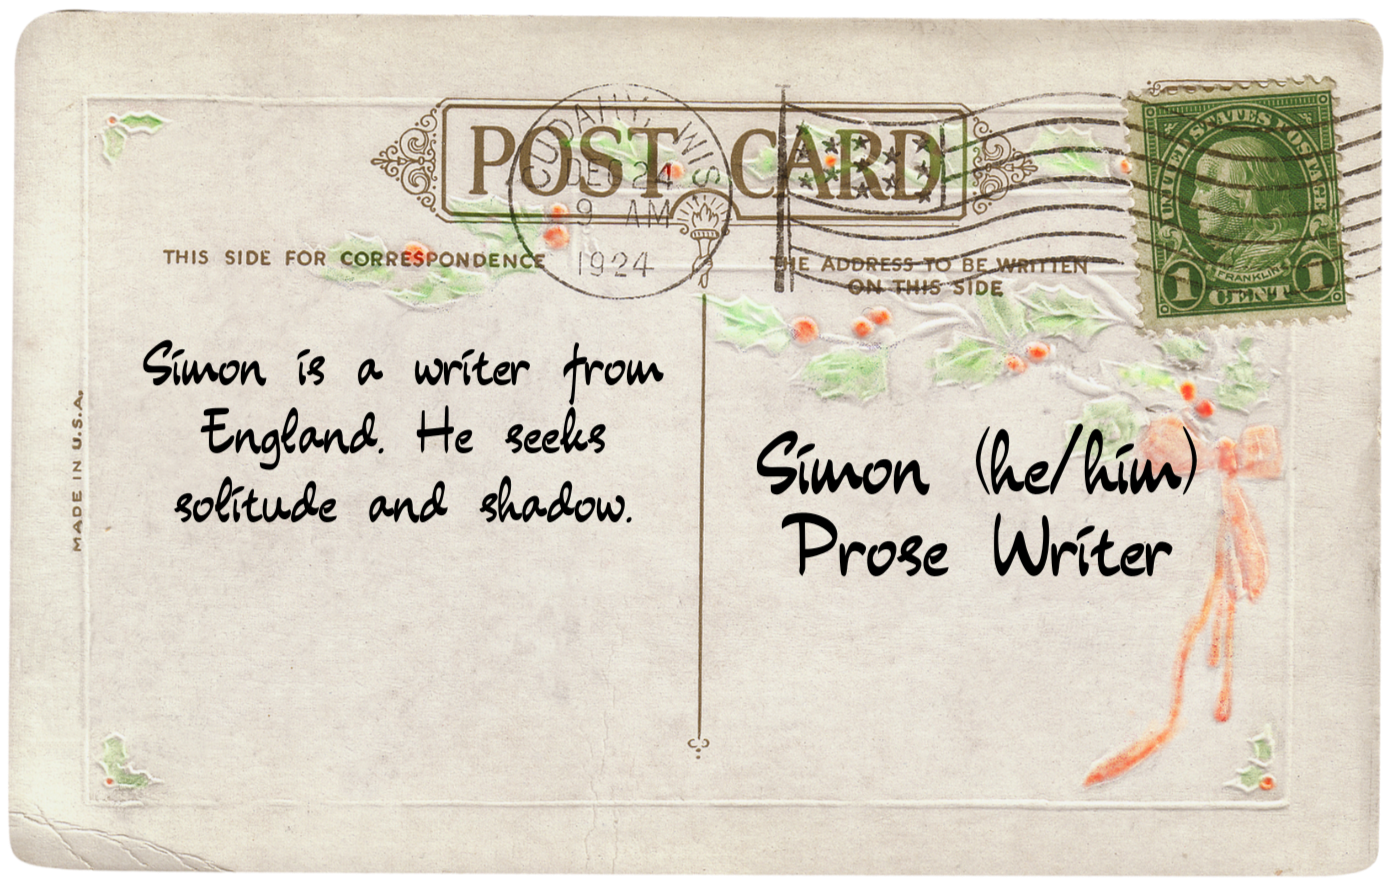 POST CARD
CUDAHY, WIS
DEC 24
9 AM
1924
UNITED STATES POSTAGE
FRANKLIN
1 CENT 1
THIS SIDE FOR CORRESPONDENCE
THE ADDRESS TO BE WRITTEN
ON THIS SIDE
MADE IN U.S.A.
Simon is a writer from
England. He seeks
solitude and shadow.
Simon (he/him)
Prose Writer